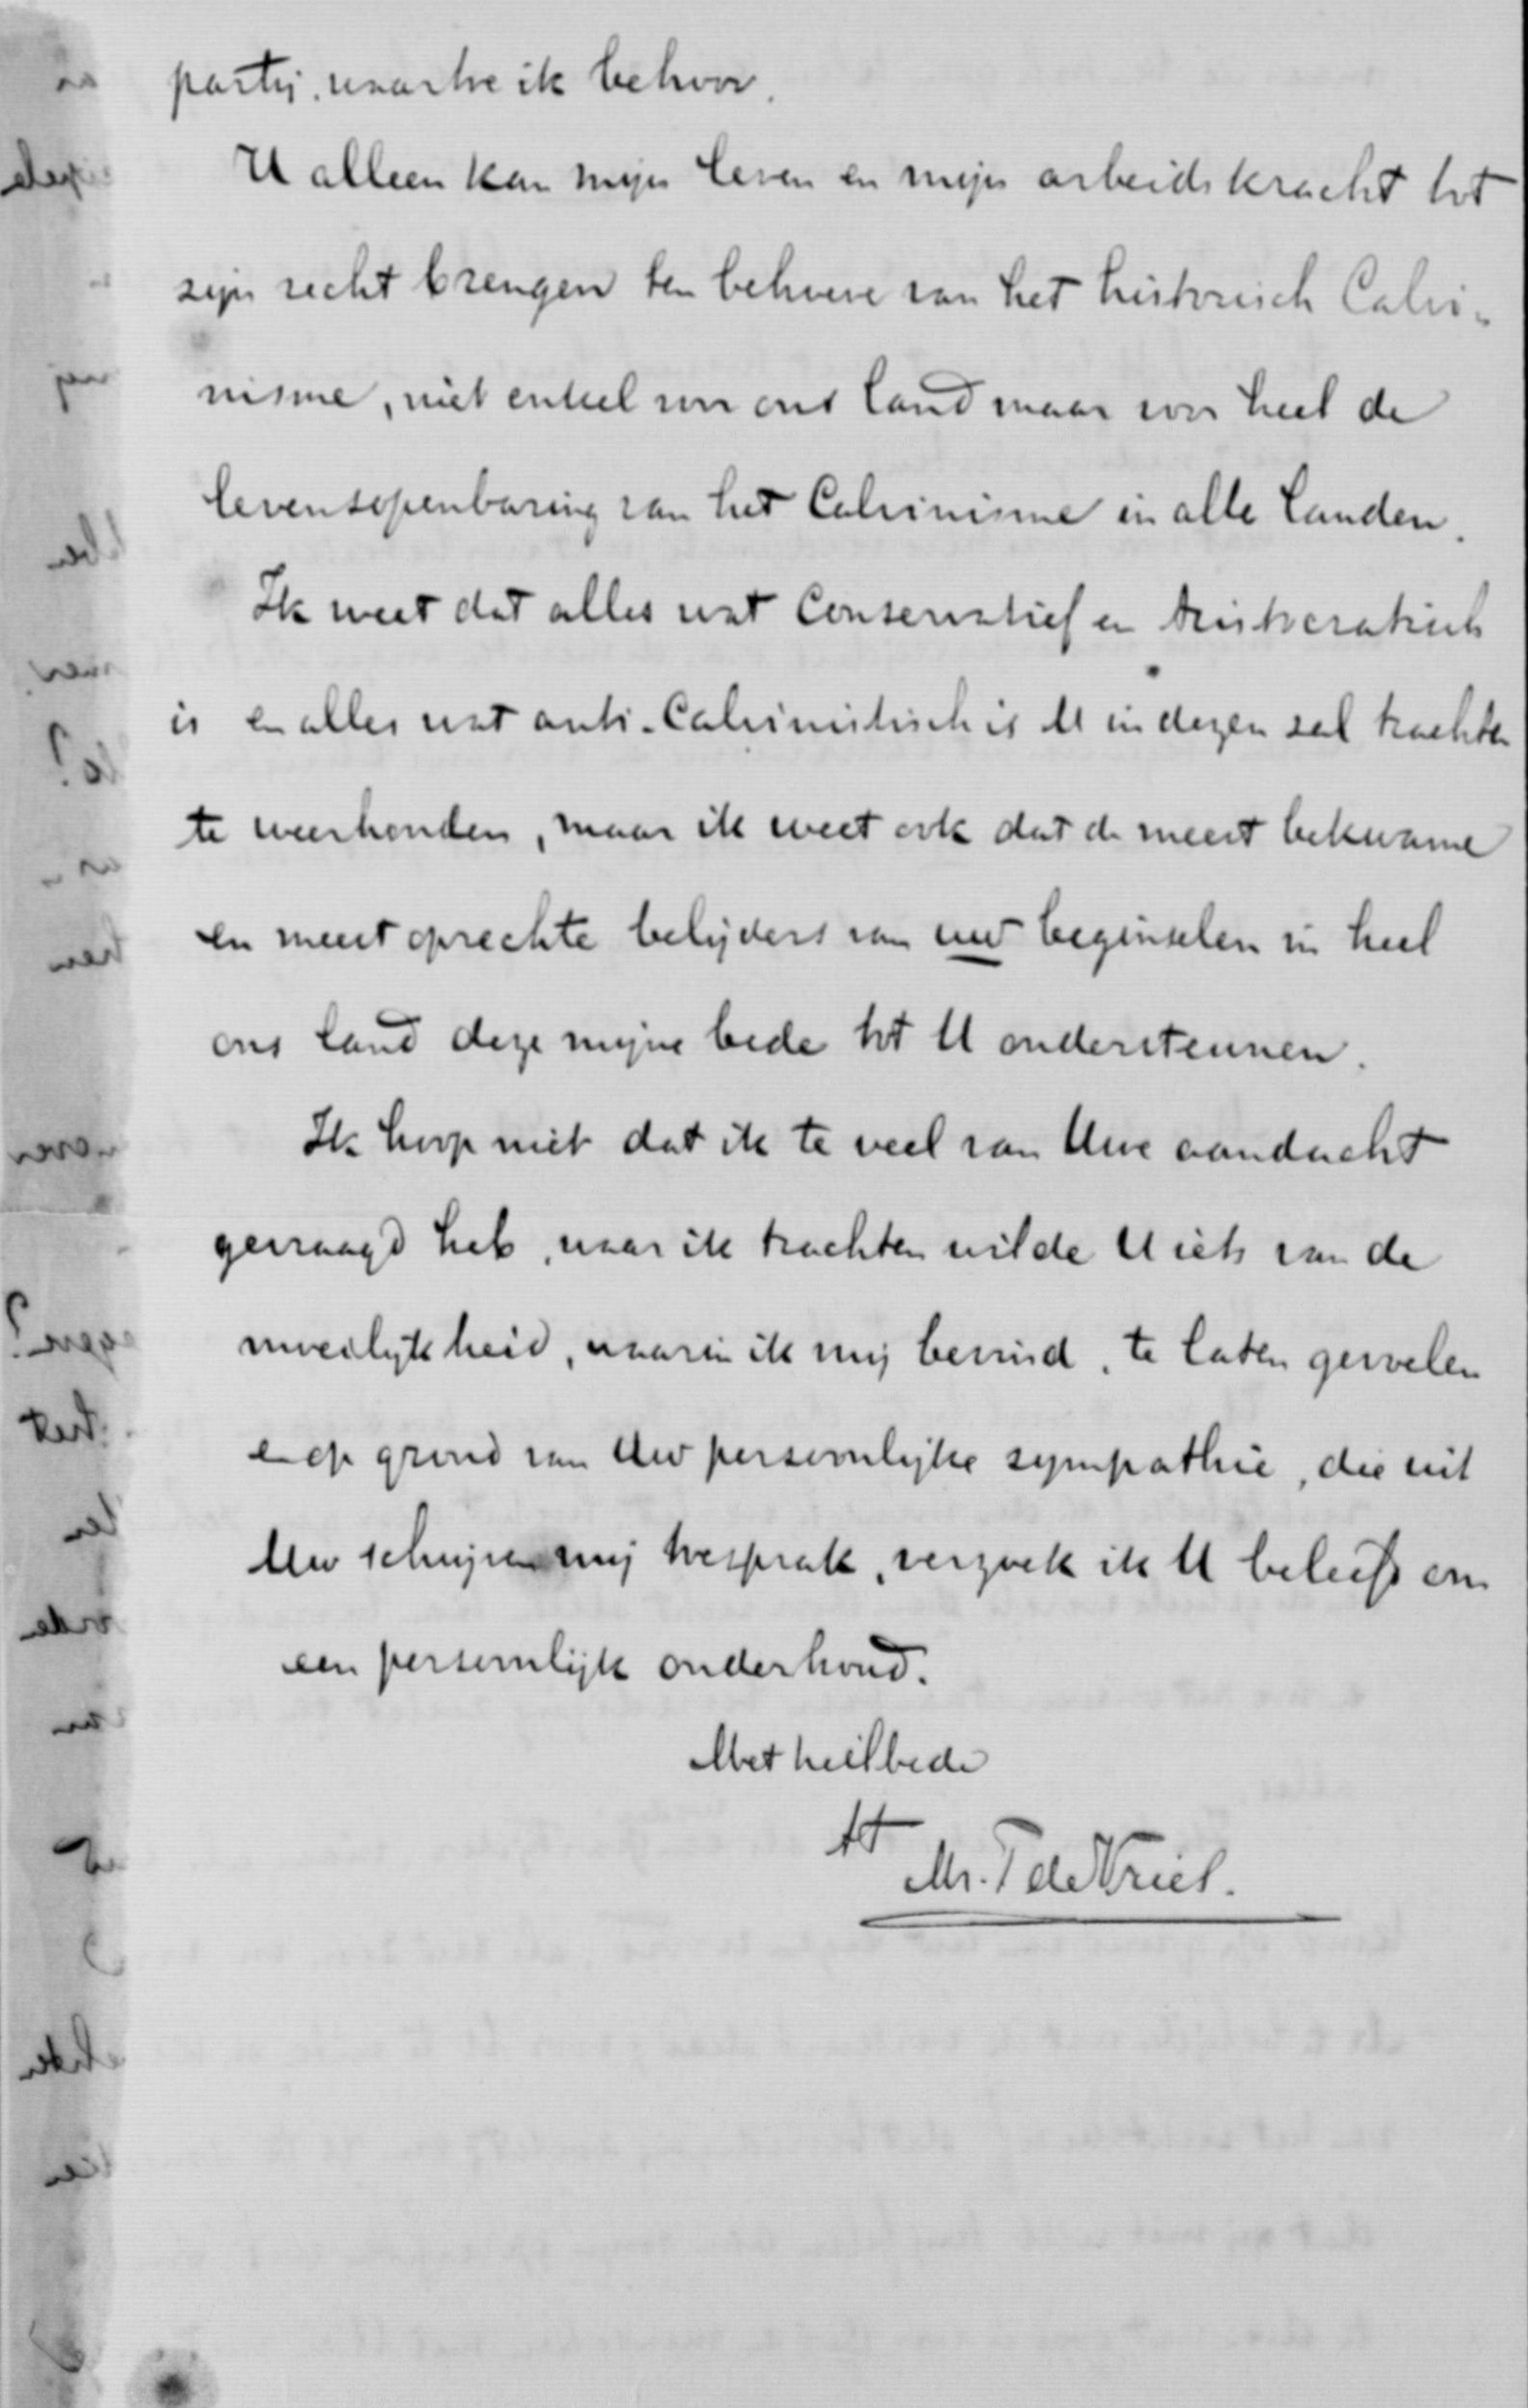 partij, waartoe ik behoor.
U alleen kan mijn leven en mijn arbeidskracht tot
zijn recht brengen ten behoeve van het historisch Calvi-
nisme, niet enkel voor ons land maar voor heel de
levensopenbaring van het Calvinisme in alle landen.
Ik weet dat alles wat Conservatief en Aristocratisch
is en alles wat anti-Calvinistisch is U in dezen zal trachten
te weerhouden, maar ik weet ook dat de meest bekwame
en meest oprechte belijders van uw beginselen in heel
ons land deze mijne bede tot U ondersteunen.
Ik hoop niet dat ik te veel van Uwe aandacht
gevraagd heb, maar ik trachten wilde U iets van de
moeilijkheid, waarin ik mij bevind, te laten gevoelen
en op grond van Uw persoonlijke sympathie, die uit
Uw schrijven mij toesprak, verzoek ik U beleefd om
een persoonlijk onderhoud.
Met heilbede
tt
Mr. T de Vries.